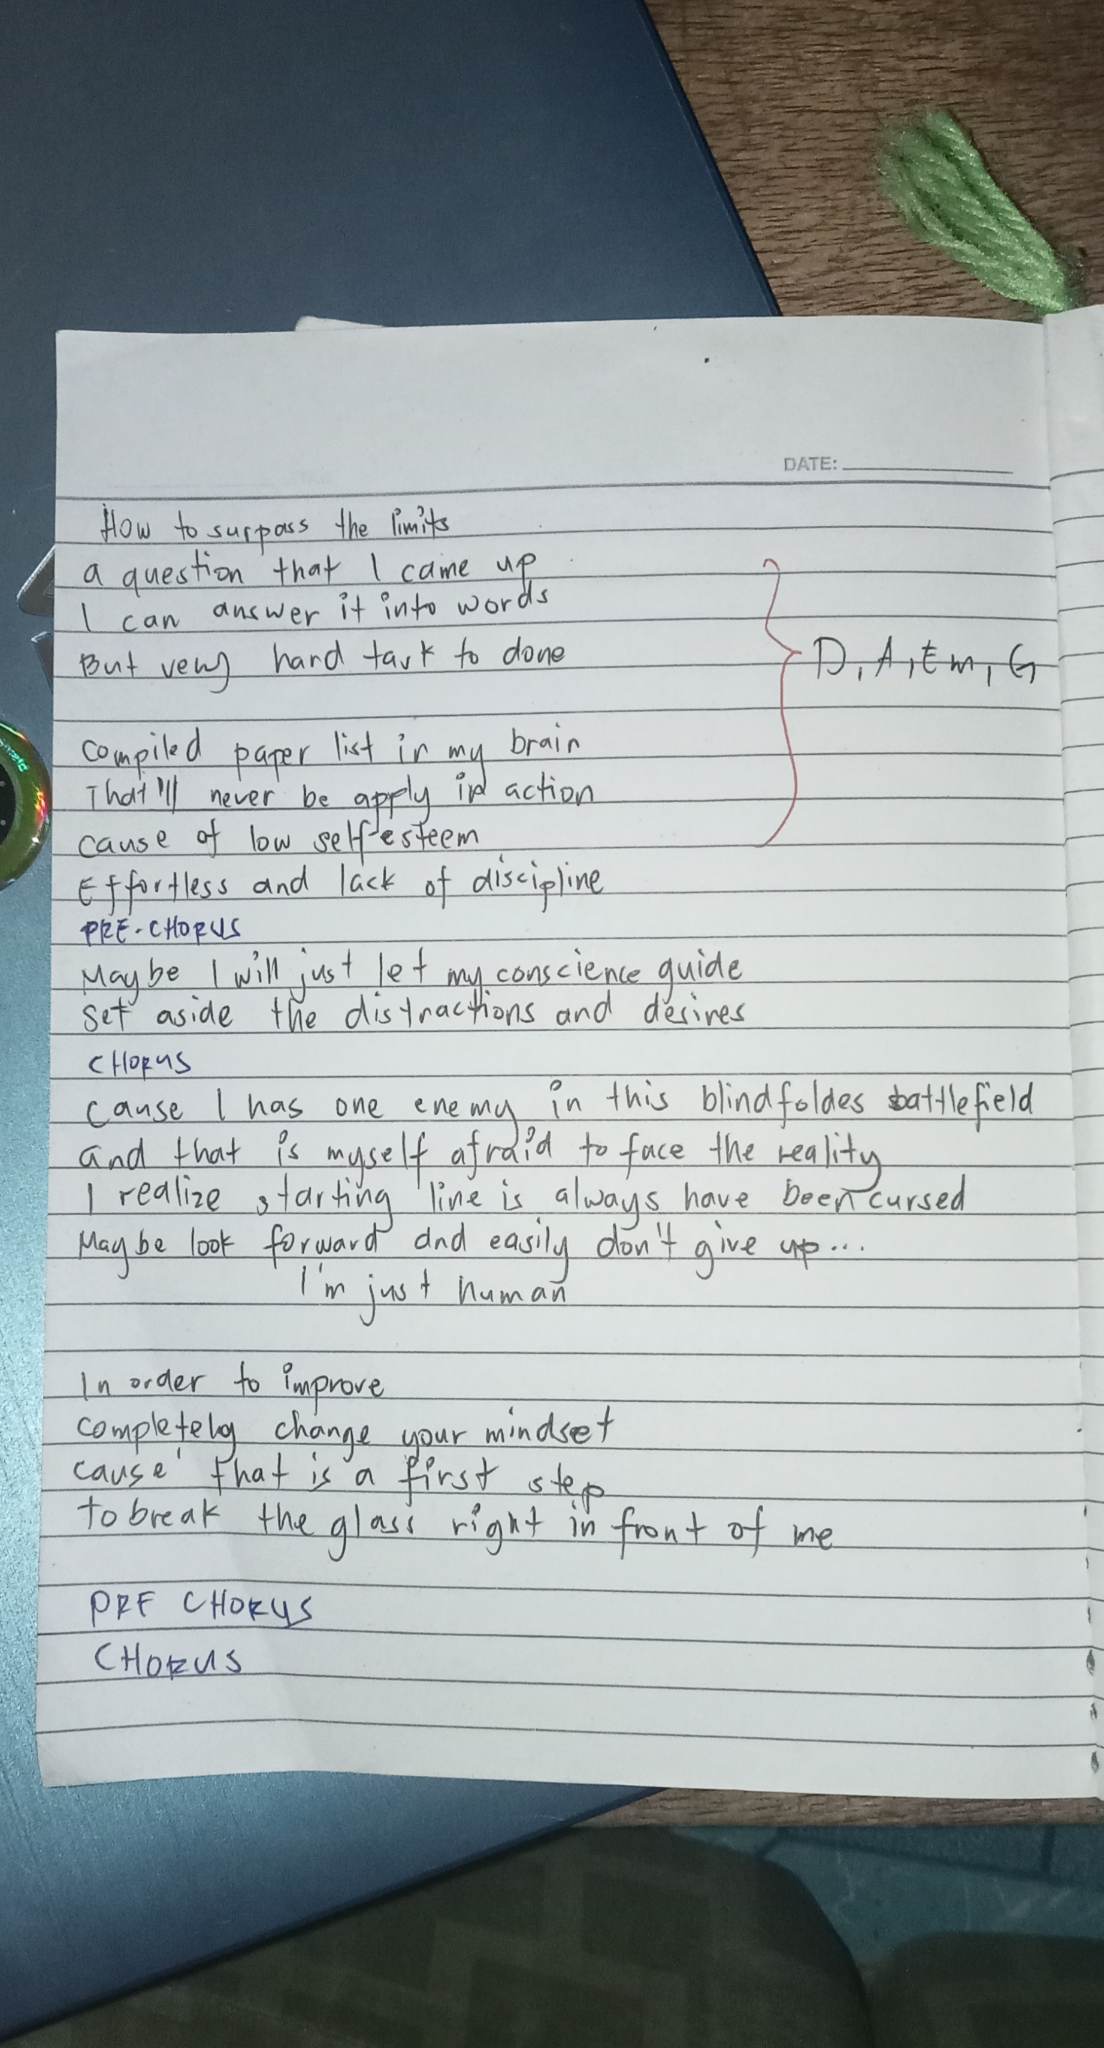 DATE:
How to surpass the limits
a question that I came up
I can answer it into words
But very hard task to done
D, A, Em, G
compiled paper list in my brain
That'll never be apply in action
cause of low self-esteem
Effortless and lack of discipline
PRE-CHORUS
Maybe I will just let my conscience guide
set aside the distractions and desires
CHORUS
cause I has one enemy in this blindfoldes battlefield
and that is myself afraid to face the reality
I realize starting line is always have been cursed
Maybe look forward and easily don't give up...
I'm just human
In order to improve
completely change your mindset
cause' that is a first step
to break the glass right in front of me
PRE CHORUS
CHORUS